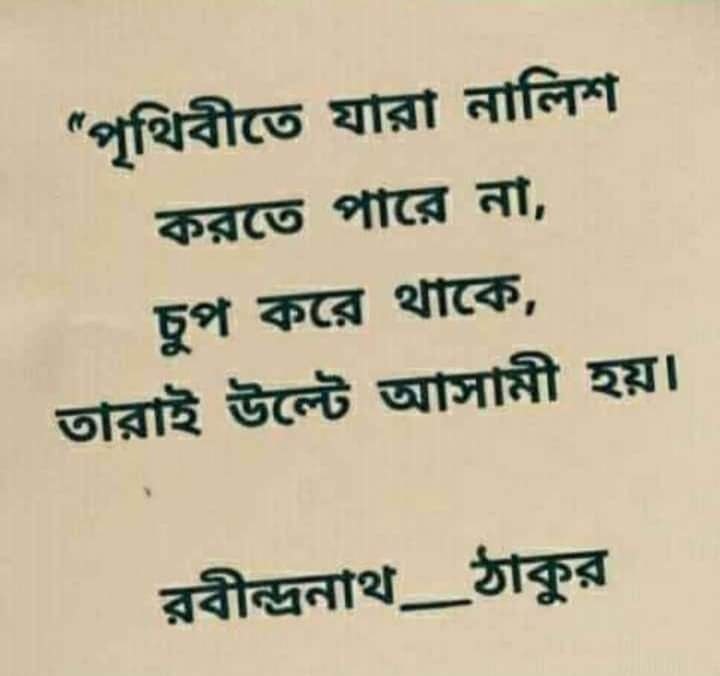 “পৃথিবীতে যারা নালিশ
করতে পারে না,
চুপ করে থাকে,
তারাই উল্টে আসামী হয়।
রবীন্দ্রনাথ__ঠাকুর